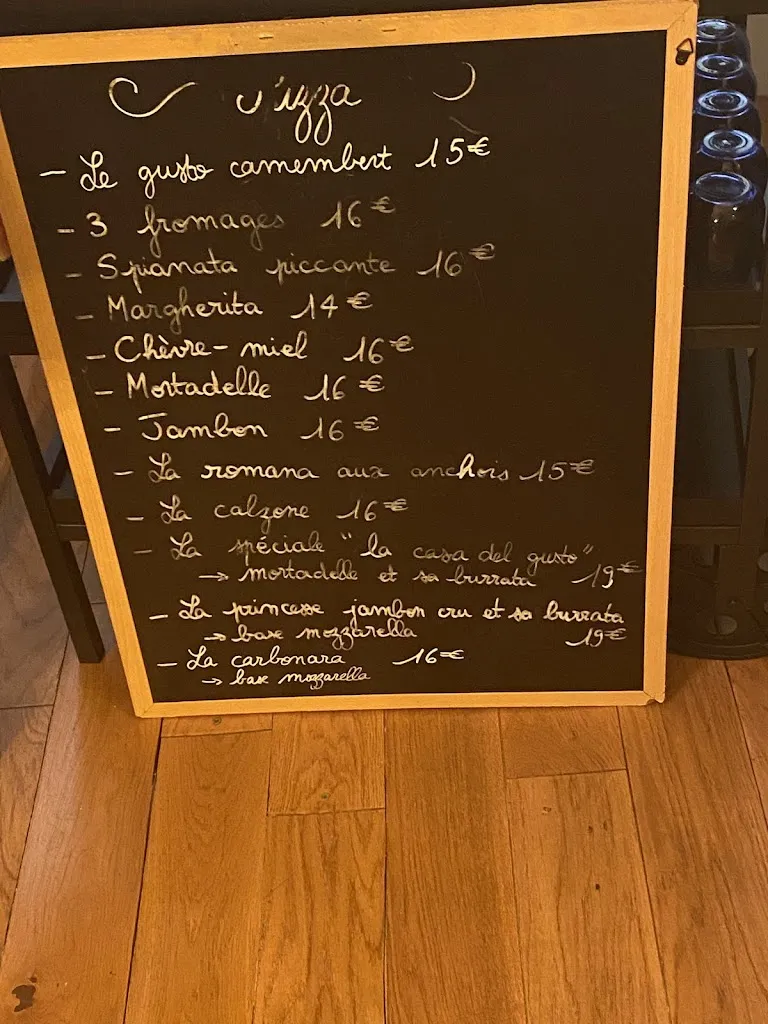 Pizza
- Le gusto camembert 15€
- 3 fromages 16€
- Spianata piccante 16€
- Margherita 14€
- Chèvre-miel 16€
- Mortadelle 16€
- Jambon 16€
- La romana aux anchois 15€
- La calzone 16€
- La spéciale "la casa del gusto"
→ mortadelle et sa burrata 19€
- La princesse jambon cru et sa burrata
→ base mozzarella 19€
- La carbonara 16€
→ base mozzarella